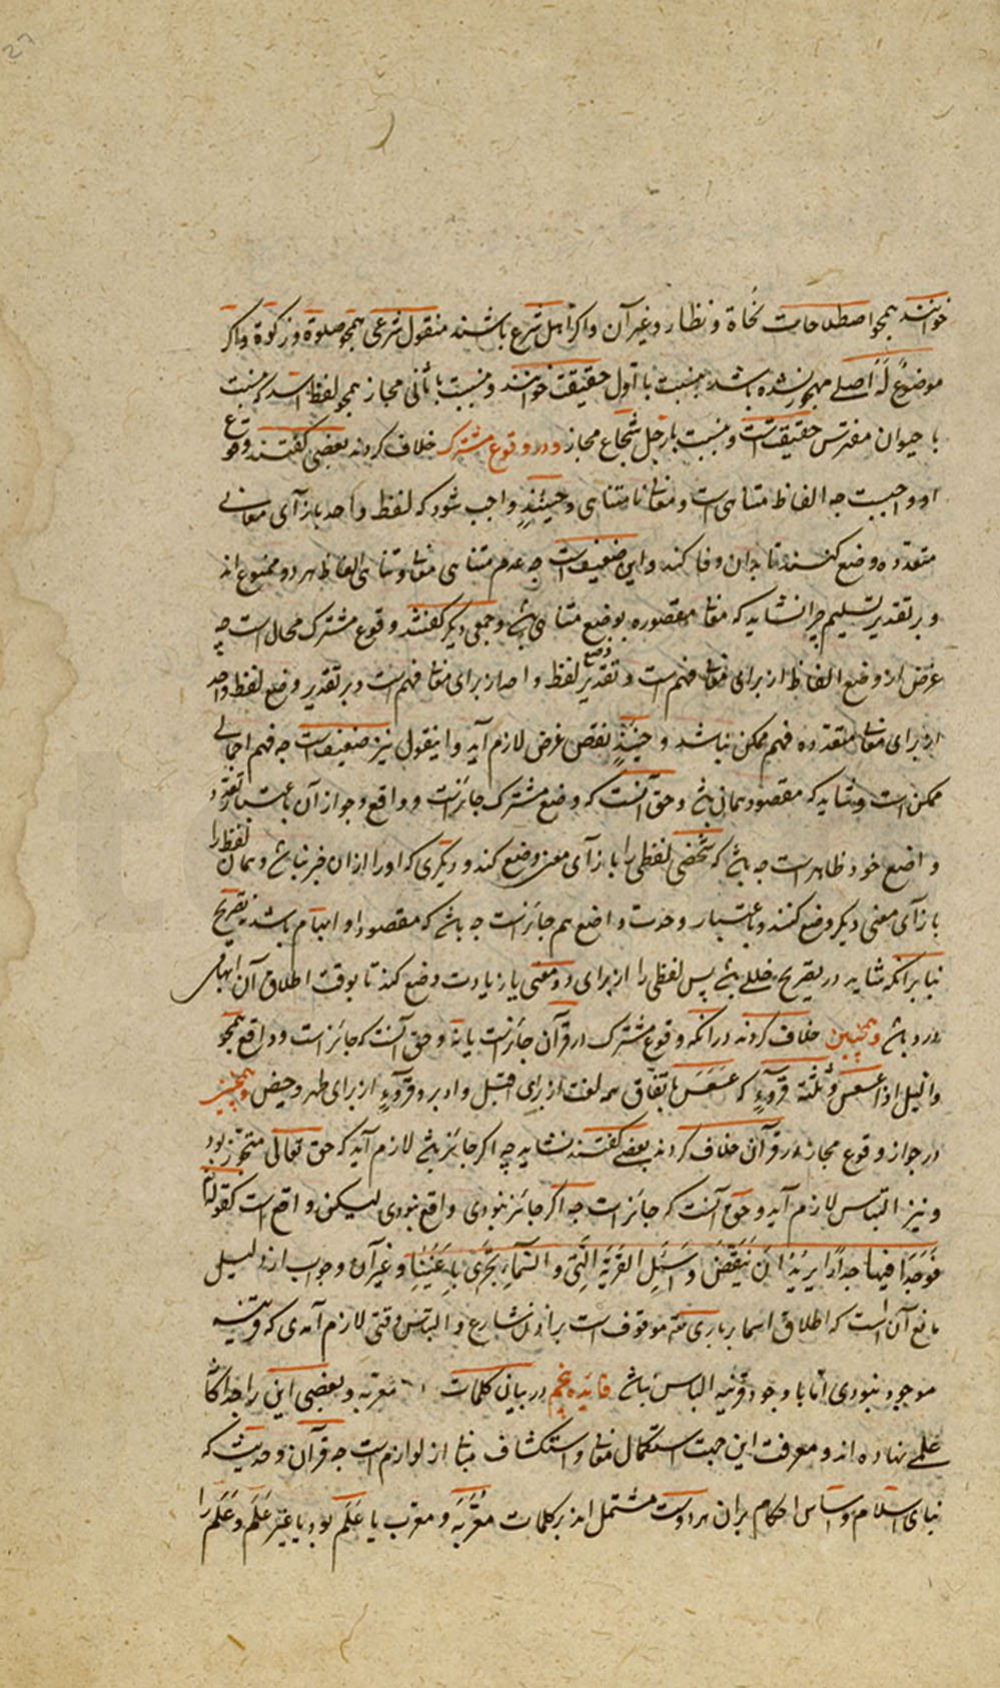 خوانند همچو اصطلاحات نُحاة و نظار و غیر آن و اکر اهل شرع باشند منقول شرعی همچو صلوة و زکوة و اکر
موضوع لهٔ اصلی مهجور نشده باشد بنسبت با اول حقیقت خوانند و بنسبت با ثانی مجاز همچو لفظ اسد که بنسبت
با حیوان مفترس حقیقتست و بنسبت با رجل شجاع مجاز و در وقوع مشترک خلاف کردند بعضی کفتند وقوع
او واجبست جه الفاظ متناهی است و معانی نامتناهی و حینئذٍ واجب شود که لفظ واحد بازآی معانی
متعدده وضع کنند تا بدان وفا کند و این ضعیفست جه عدم تناهی معانی و تناهی الفاظ هر دو ممنوع اند
و بر تقدیر تسلیم چرا نشاید که معانی مقصوره بوضع متناهی باشد و جمعی دیکر کفتند وقوع مشترک محال است چه
غرض از وضع الفاظ از برای معانی فهم است و تقدیر وضع لفظ واحد از برای معانی فهم است و بر تقدیر وضع لفظ واحد
از برای معانی متعدده فهم ممکن نباشد و حینئذٍ نقض غرض لازم آید و اینقول نیز ضعیفست جه فهم اجمالی
ممکن است و شاید که مقصود همان باشد و حق آنست که وضع مشترک جائزست و واقع و جواز آن باعتبار تعدد
واضع خود ظاهر است جه باشد که شخصی لفظی را بازآی معنی وضع کند و دیکری که او را از آن خبر نباشد همان لفظ را
بازآی معنی دیکر وضع کند و باعتبار وحدت واضع هم جائزست جه باشد که مقصود او ابهام باشد نه تصریح
بنابر آنکه شاید در تصریح خللی باشد پس لفظی را از برای دو معنی یا زیادت وضع کند تا بوقت اطلاق آن ابهامی
درو باشد و همچنین خلاف کردند در آنکه وقوع مشترک در قرآن جائزست یا نه و حق آنست که جائزست و واقع همچو
واللیل اذا عسعس و ثلثة قروءٍ که عسعس باتفاق اهل لغت از برای اقبل و ادبر و قروءٍ از برای طهر و حیض و همچنین
در جواز وقوع مجاز در قرآن خلاف کردند بعضی کفتند نشاید چه اکر جائز باشد لازم آید که حق تعالی متجوز بود
و نیز التباس لازم آید و حق آنست که جائز است جه اکر جائز نبودی واقع نبودی لیکن واقع است کقوله تعالی
فوجدا فیها جداراً یرید ان ینقض و اسئل القریة التی و السماء تجری باعیننا و غیر آن و جواب از دلیل
مانع آن است که اطلاق اسماء باری تعالی موقوف است بر اذن شارع و التباس وقتی لازم آمدی که قرینه
موجود نبودی اما با وجود قرینه التباس نباشد فایده پنجم در بیان کلمات معربه و بعضی این را جداکانه
علمی نهاده اند و معرفت این جهت استکمال معانی و استکشاف مبانی از لوازم است جه قرآن و حدیث که
بنای اسلام و اساس احکام بران هر دوست مشتمل اند بر کلمات معربه و معرب یا علم بود یا غیر علم و علم را